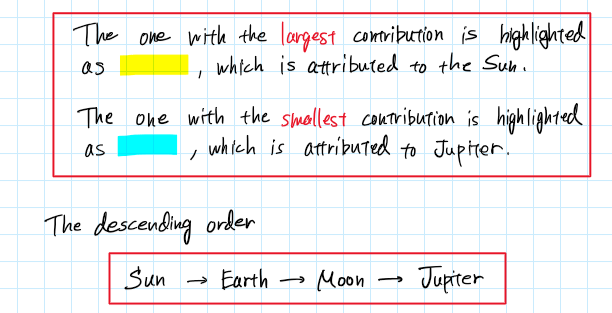 The one with the largest contribution is highlighted
as , which is attributed to the Sun.
The one with the smallest contribution is highlighted
as , which is attributed to Jupiter.
The descending order
Sun → Earth → Moon → Jupiter